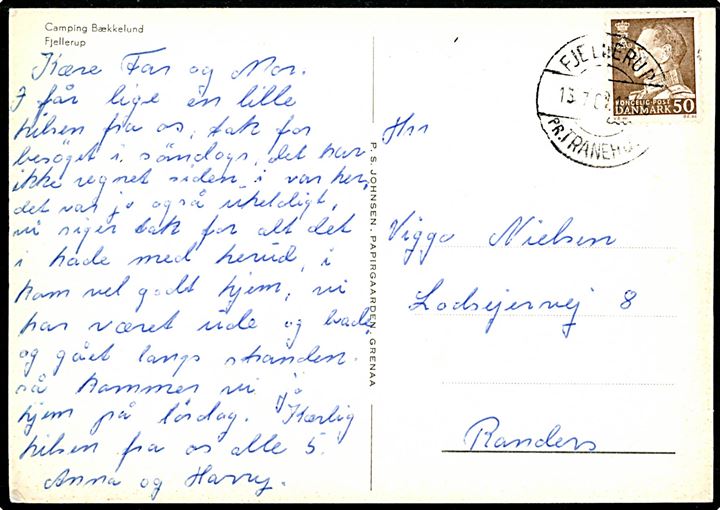 Camping Bækkelund
Fjellerup
Kære Far og Mor.
I får lige en lille
hilsen fra os, tak for
besøget i søndags, det har
ikke regnet siden i var her,
det var jo også uheldigt,
vi siger tak for alt det
i hade med herud, i
kom vel godt hjem, vi
har været ude og bade,
og gået langs stranden.
så kommer vi jo
hjem på lørdag. Kærlig
hilsen fra os alle 5.
Anna og Harry.
P. S. JOHNSEN, PAPIRGAARDEN, GRENAA
FJELLERUP
PR. TRANEH
KONGELIG POST
DANMARK 50
Hrr
Viggo Nielsen
Lodsejervej 8
Randers